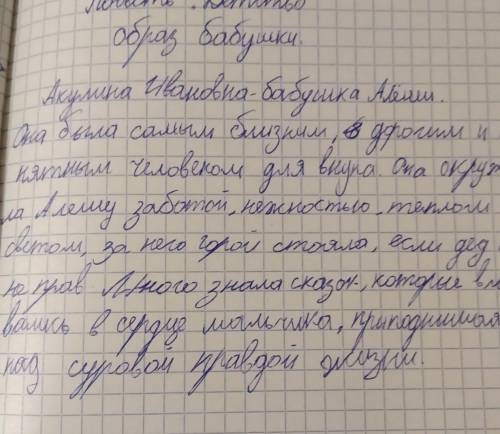 Повесть "Детство
образ бабушки.
Акулина Ивановна-бабушка Алеши.
Она была самым близким, дорогим и
нятным человеком для внука. Она окруж
ла Алешу заботой, нежностью, теплом
светом, за него горой стояла, если дед
не прав Много знала сказок, которые вли
вались в сердце мальчика, приподнимая
над суровой правдой жизни.